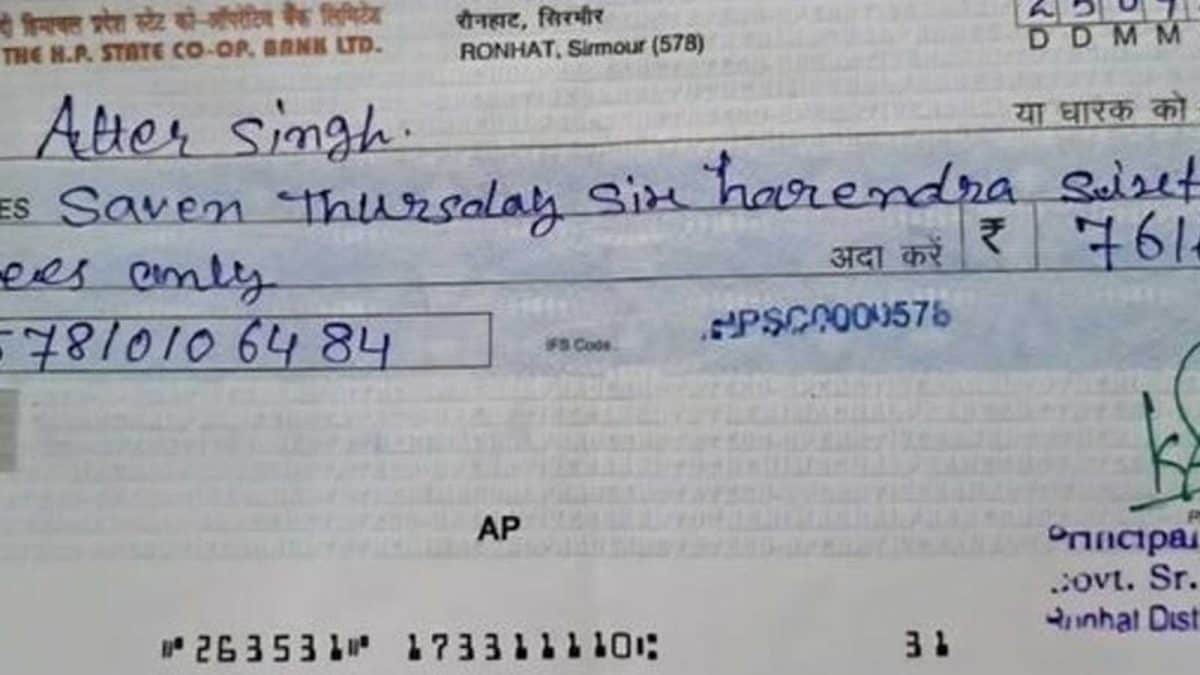 हिमाचल प्रदेश स्टेट को-ऑपरेटिव बैंक लिमिटेड
THE H.P. STATE CO-OP. BANK LTD.
रौनहाट, सिरमौर
RONHAT, Sirmour (578)
D D M M
Atter Singh.
या धारक को
ES Saven Thursday Six harendra
अदा करें ₹ 761
ees only
78101064 84
IFS Code
HPSC0000578
AP
Principal
Govt. Sr.
Ronhat Dist
⑈263531⑈ 173311110⑆ 31